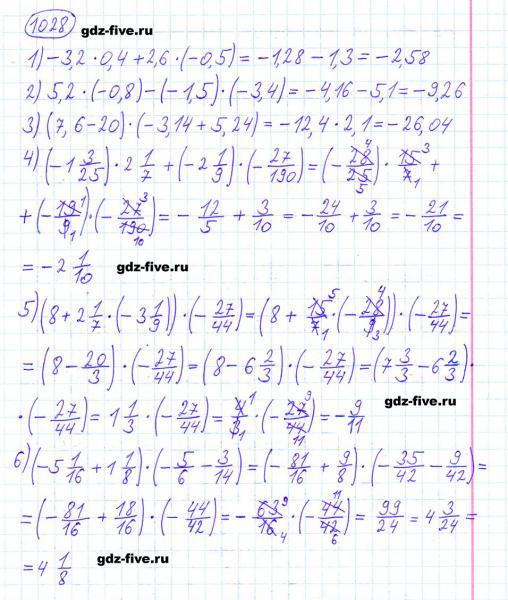 1028 gdz-five.ru
1) -3,2 · 0,4 + 2,6 · (-0,5) = -1,28 - 1,3 = -2,58
2) 5,2 · (-0,8) - (-1,5) · (-3,4) = -4,16 - 5,1 = -9,26
3) (7,6 - 20) · (-3,14 + 5,24) = -12,4 · 2,1 = -26,04
4) (-1 3/25) · 2 1/7 + (-2 1/9) · (-27/190) = (-28/25) · 15/7 +
+ (-19/9) · (-27/190) = -12/5 + 3/10 = -24/10 + 3/10 = -21/10 =
= -2 1/10 gdz-five.ru
5) (8 + 2 1/7 · (-3 1/9)) · (-27/44) = (8 + 15/7 · (-28/9)) · (-27/44) =
= (8 - 20/3) · (-27/44) = (8 - 6 2/3) · (-27/44) = (7 3/3 - 6 2/3) ·
· (-27/44) = 1 1/3 · (-27/44) = 4/3 · (-27/44) = -9/11 gdz-five.ru
6) (-5 1/16 + 1 1/8) · (-5/6 - 3/14) = (-81/16 + 9/8) · (-35/42 - 9/42) =
= (-81/16 + 18/16) · (-44/42) = -63/16 · (-44/42) = 99/24 = 4 3/24 =
= 4 1/8 gdz-five.ru